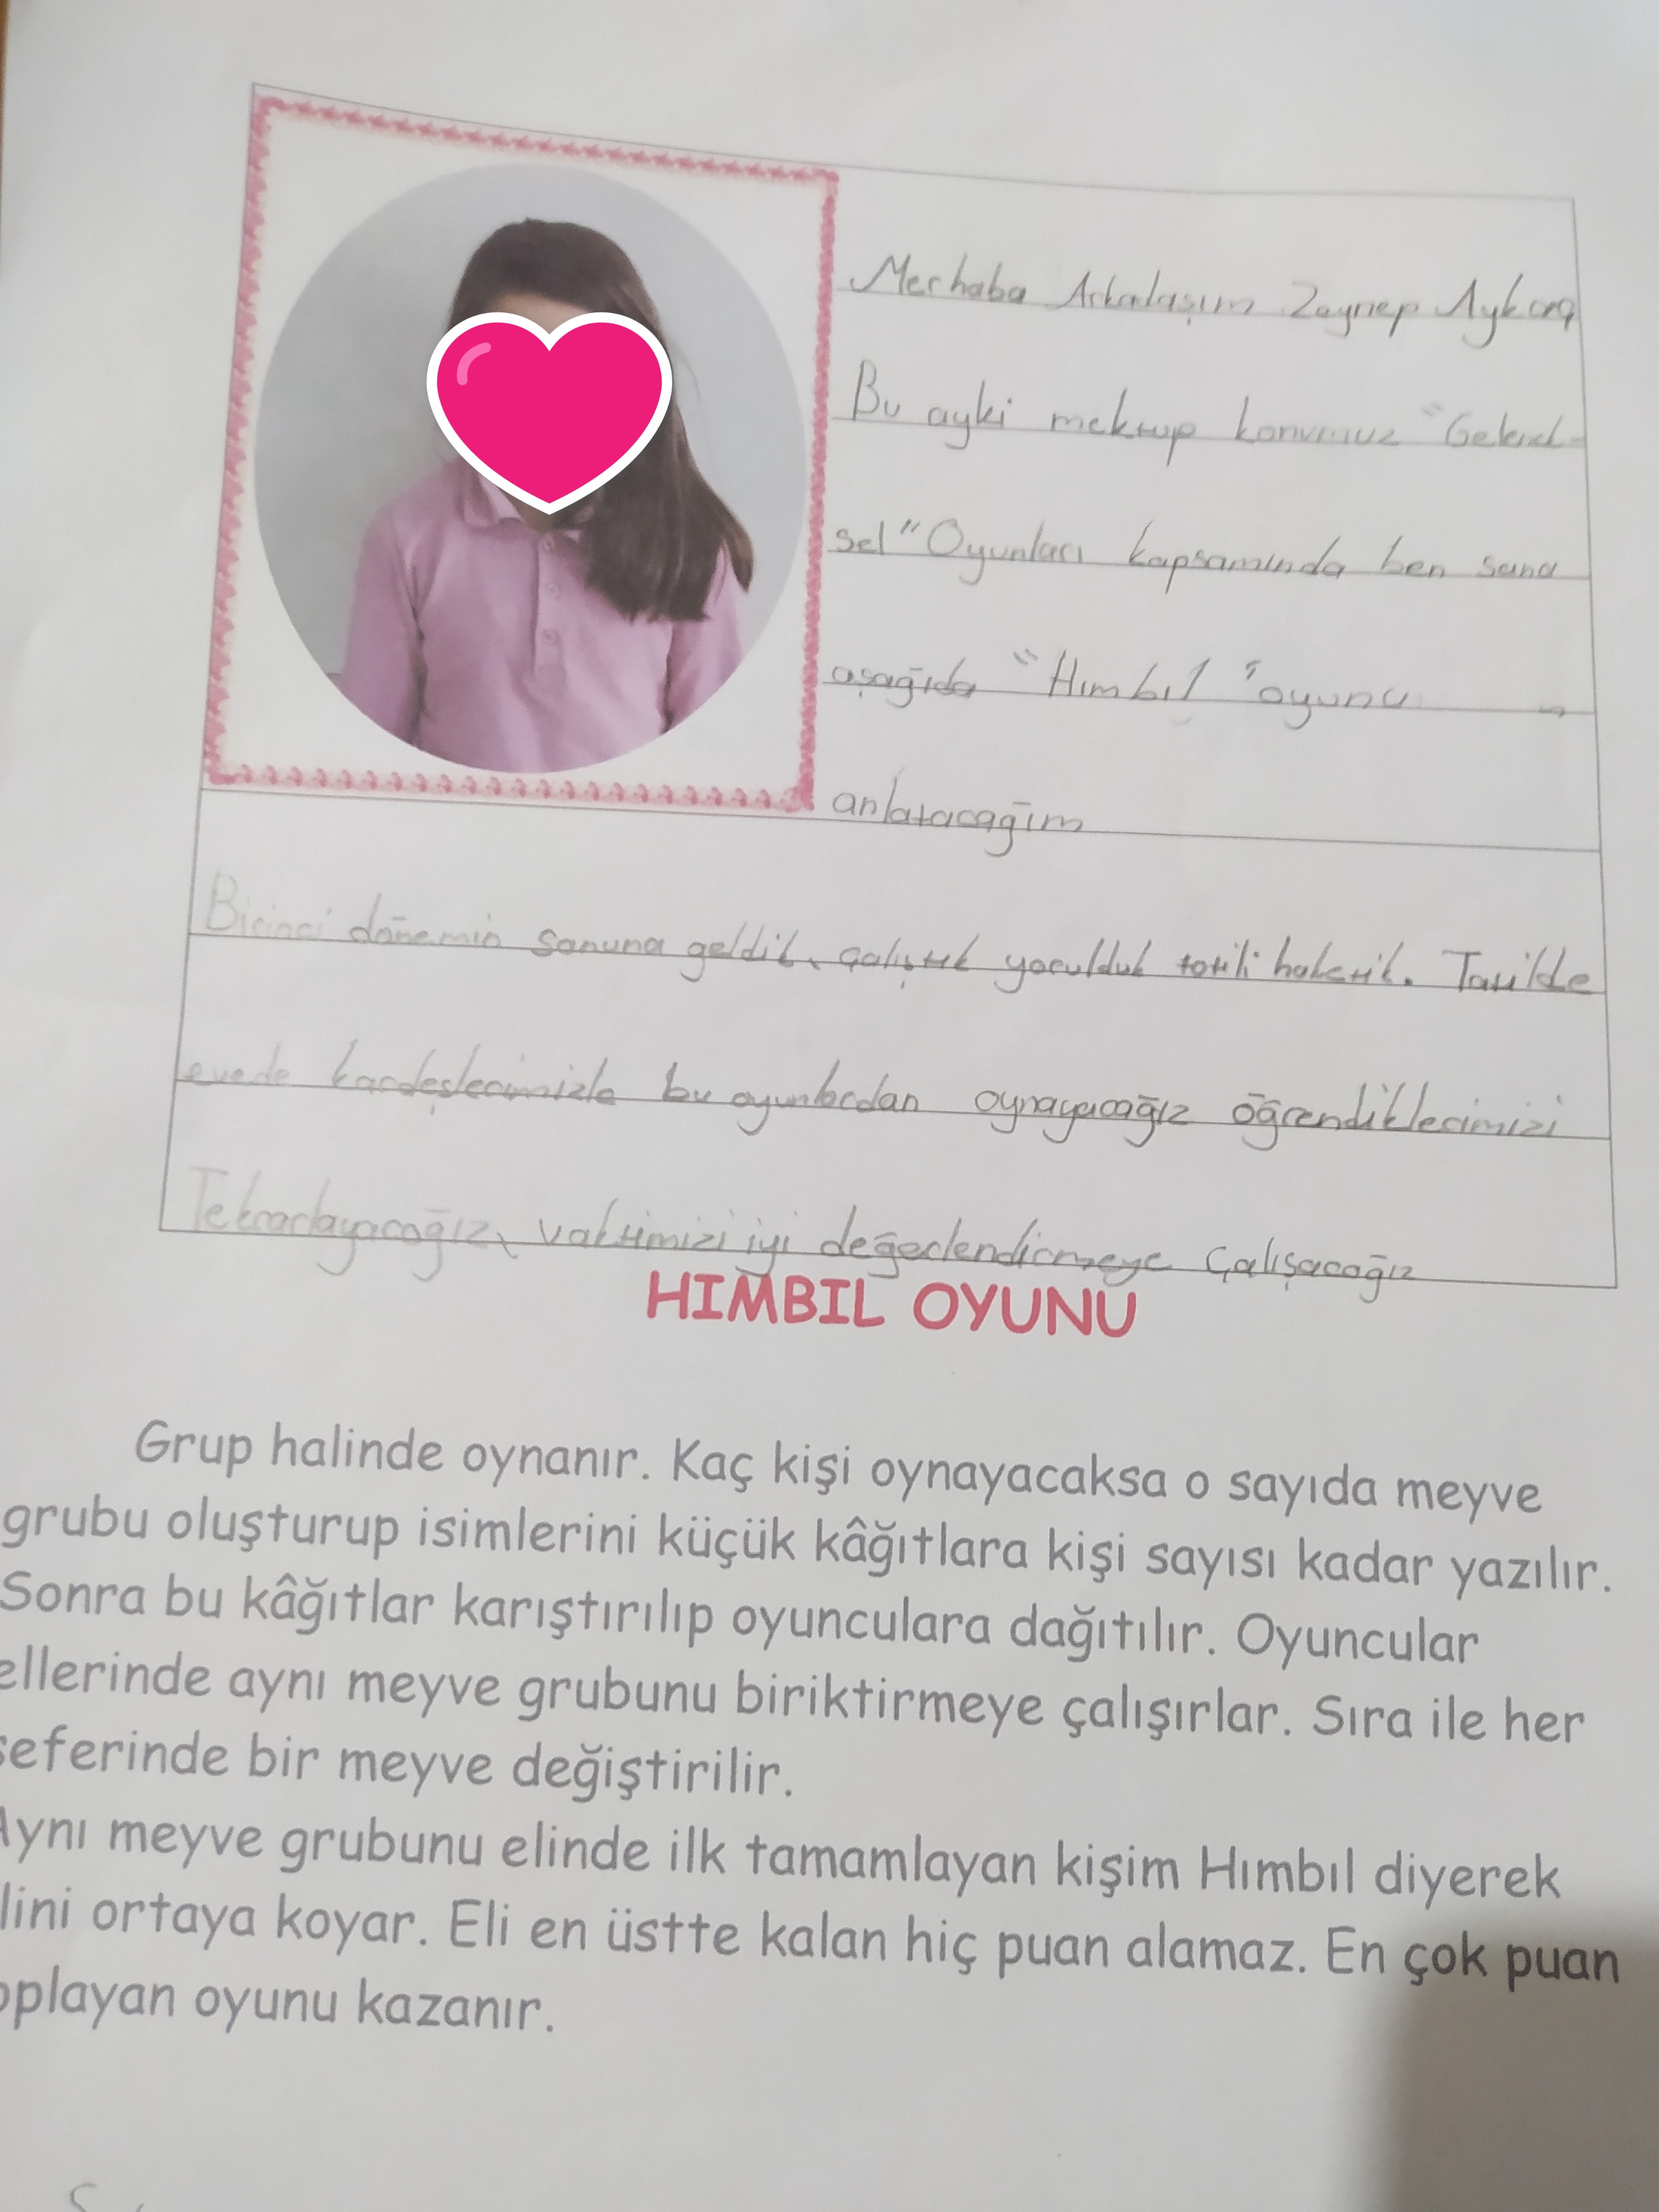 Merhaba Arkadaşım Zeynep
Bu ayki mektup konumuz "Gelenek-
sel" Oyunları kapsamında ben sana
aşağıda "Hımbıl" oyunu
anlatacağım
Birinci dönemin sonuna geldik, çalıştık yorulduk tatili hakettik. Tatilde
evede kardeşlerimizle bu oyunlardan oynayacağız öğrendiklerimizi
Tekrarlayacağız, vaktimizi iyi değerlendirmeye çalışacağız
HIMBIL OYUNU
Grup halinde oynanır. Kaç kişi oynayacaksa o sayıda meyve
grubu oluşturup isimlerini küçük kâğıtlara kişi sayısı kadar yazılır.
Sonra bu kâğıtlar karıştırılıp oyunculara dağıtılır. Oyuncular
ellerinde aynı meyve grubunu biriktirmeye çalışırlar. Sıra ile her
seferinde bir meyve değiştirilir.
Aynı meyve grubunu elinde ilk tamamlayan kişim Hımbıl diyerek
lini ortaya koyar. Eli en üstte kalan hiç puan alamaz. En çok puan
oplayan oyunu kazanır.